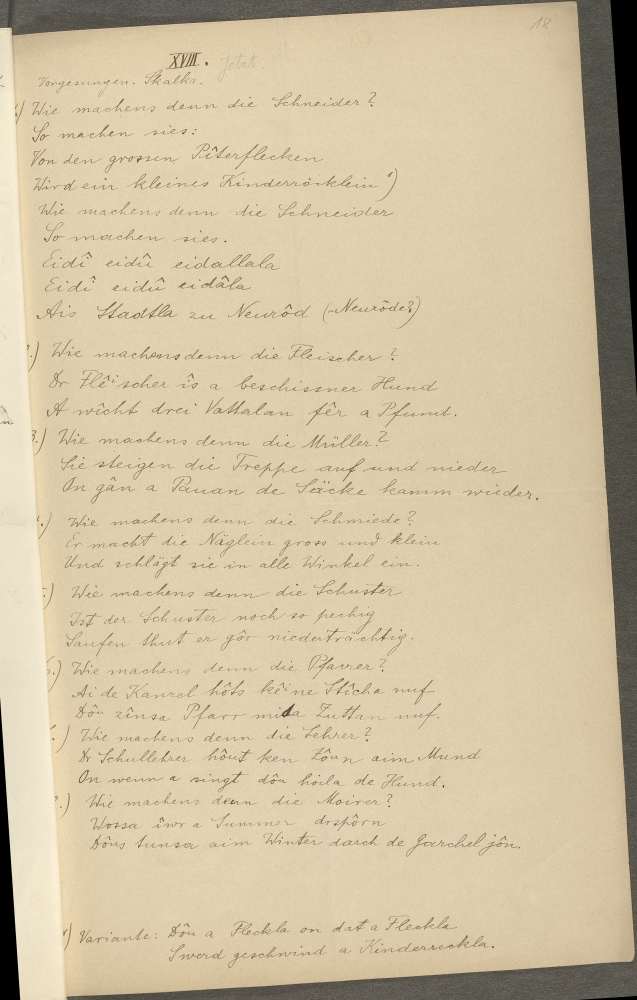 18
XVIII. Jetzt.
Vorgesungen. Skalka.
1) Wie machens denn die Schneider?
So machen sies:
Von den grossen Piterflecken
Wird ein kleines Kinderröcklein 1)
Wie machens denn die Schneider
So machen sies.
Eidî eidû eidallala
Eidî eidû eidâla
Ais Stadtla zu Neurôd (=Neurode?)
2.) Wie machens denn die Fleischer?
Dr Flêischer îs a beschissner Hund
A wîcht drei Vattalan fêr a Pfunt.
3.) Wie machens denn die Müller?
Sie steigen die Treppe auf und nieder
On gân a Pauan de Säcke kamm wieder.
4.) Wie machens denn die Schmiede?
Er macht die Näglein gross und klein
Und schlägt sie in alle Winkel ein.
5.) Wie machens denn die Schuster
Ist der Schuster noch so pechig
Saufen thut er gôr niederträchtig.
6.) Wie machens denn die Pfarrer?
Ai de Kanzel hôts kêine Stîcha nuf
Dôu zînsa Pfarr mitta Zuttan nuf.
7.) Wie machens denn die Lehrer?
Dr Schullehrer hôut ken Zôun aim Mund
On wenn a singt dôu hoila de Hund.
8.) Wie machens denn die Moirer?
Wossa îwr a Summer drspôrn
Dôus tunsa aim Winter darch de Garchel jôn.
1) Variante: Dôu a Fleckla on dat a Fleckla
Swerd geschwind a Kinderreckla.